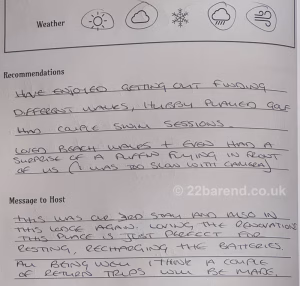 Weather
Recommendations
HAVE ENJOYED GETTING OUT FINDING
DIFFERENT WALKS, HUBBY PLAYED GOLF
HAD COUPLE SWIM SESSIONS.
LOVED BEACH WALKS + EVEN HAD A
SURPRISE OF A PUFFIN FLYING IN FRONT
OF US (I WAS TOO SLOW WITH CAMERA)
© 22barend.co.uk
Message to Host
THIS WAS OUR 3RD STAY AND ALSO IN
THIS LODGE AGAIN. LOVING THE RENOVATIONS
THIS PLACE IS JUST PERFECT FOR
RESTING, RECHARGING THE BATTERIES.
ALL BEING WELL I THINK A COUPLE
OF RETURN TRIPS WILL BE MADE,